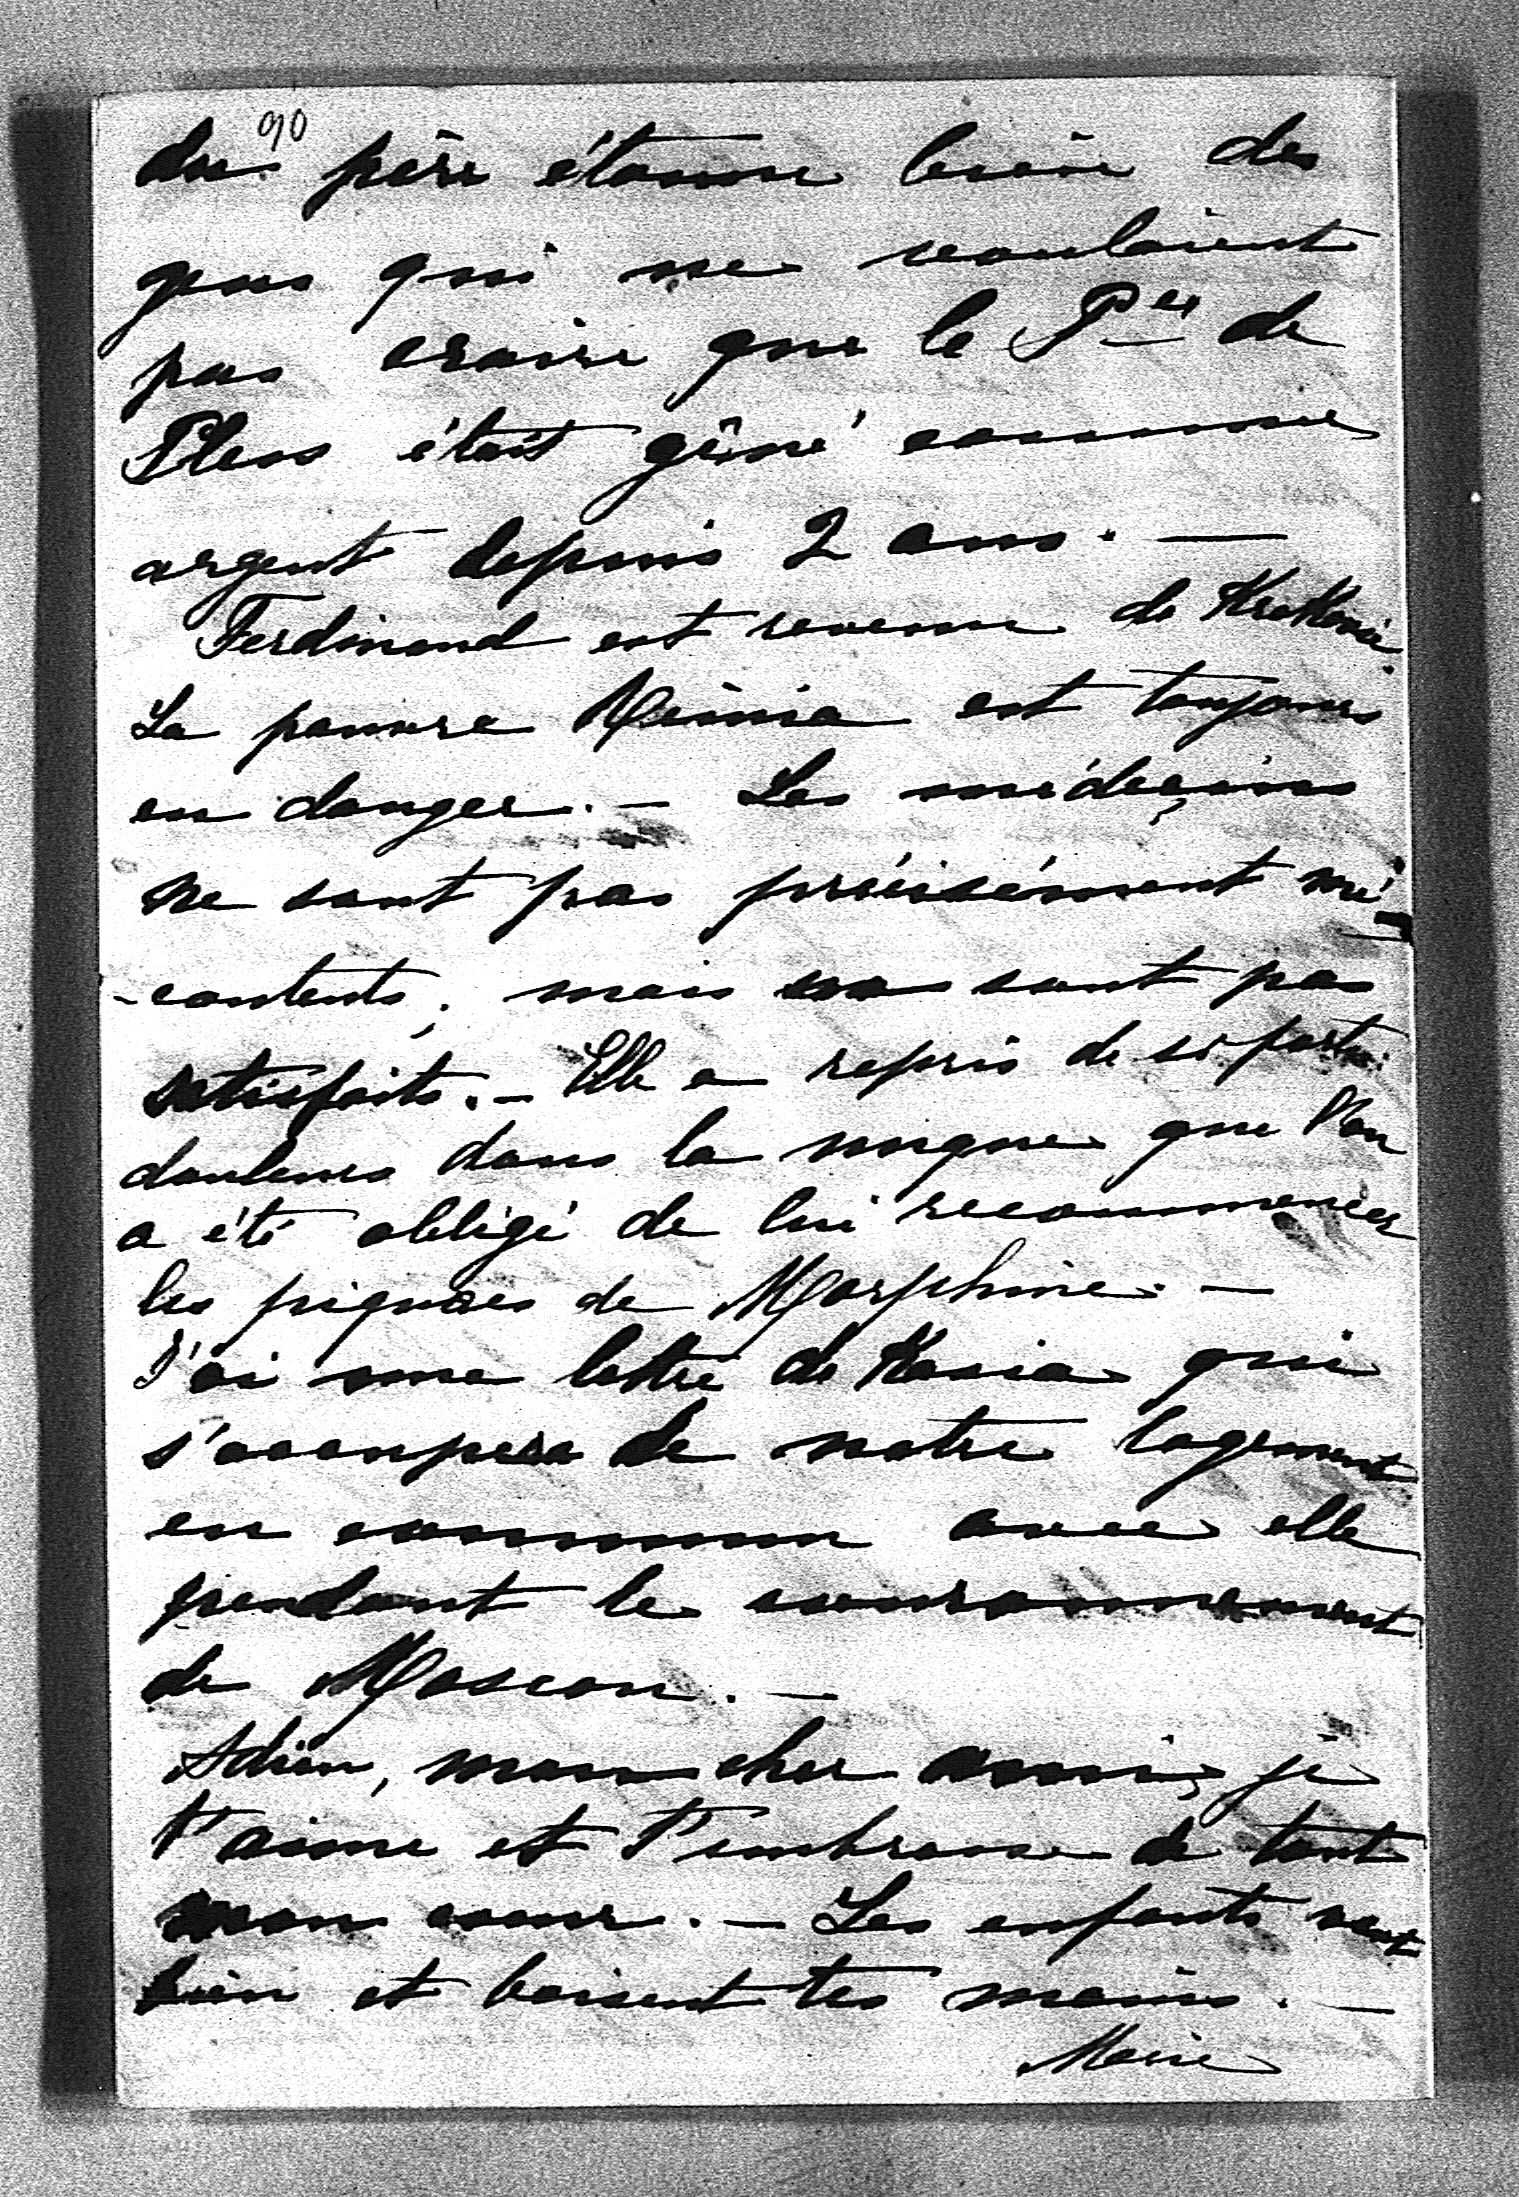 90
du père étonne bien des
gens qui ne voulaient
pas croire que le Pce de
Pless était gêné comme
argent depuis 2 ans. —
Ferdinand est revenu de
La pauvre Mimia est toujours
en danger. — Les médeçins
ne sont pas précisément mé-
-contents, mais ne sont pas
satisfaits. — Elle a repris de si fortes
douleurs dans la nuque que l'on
a été obligé de lui recommencer
les piqures de Morphine. —
J'ai une lettre de Kasia qui
s'occupera de notre logement
en commun avec elle
pendant le couronnement
de Moscou. —
Adieu, mon cher ami, je
t'aime et t'embrasse de tout
mon coeur. — Les enfants vont
bien et baisent tes mains. —
Marie